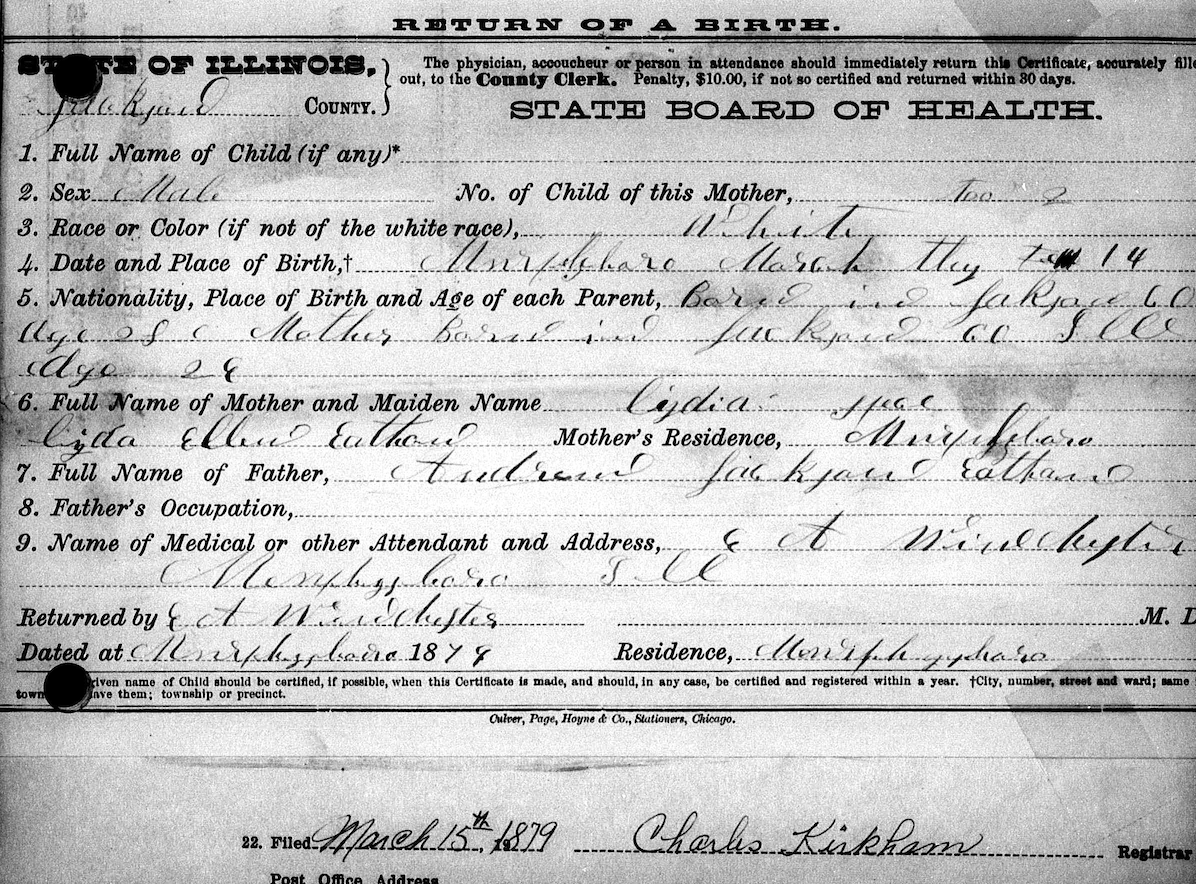 RETURN OF A BIRTH.
STATE OF ILLINOIS, The physician, accoucheur or person in attendance should immediately return this Certificate, accurately fille
out, to the County Clerk. Penalty, $10.00, if not so certified and returned within 30 days.
Jackjand COUNTY.
STATE BOARD OF HEALTH.
1. Full Name of Child (if any)*
2. Sex Male No. of Child of this Mother, Too 2
3. Race or Color (if not of the white race), White
4. Date and Place of Birth,† Murphsboro March they 14
5. Nationality, Place of Birth and Age of each Parent, Bornd ind Jakjand CO
Age 28 Mother Bornd ind Jackjand CO Ill
Age 28
6. Full Name of Mother and Maiden Name Lydia
Lyda Ellen Eathand Mother's Residence, Murphsboro
7. Full Name of Father, Andrewd Jackjand Eathand
8. Father's Occupation,
9. Name of Medical or other Attendant and Address, E A Windchyster
Murphyssboro Ill
Returned by E A Windchyster M. D
Dated at Murphyssboro 1879 Residence, Murphyssboro
iven name of Child should be certified, if possible, when this Certificate is made, and should, in any case, be certified and registered within a year. †City, number, street and ward; same
town ave them; township or precinct.
Culver, Page, Hoyne & Co., Stationers, Chicago.
22. Filed March 15th 1879 Charles Kirkham Registrar
Post Office Address